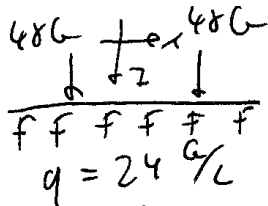 48G x 48G
z
F F F F F F
q = 24 G/L